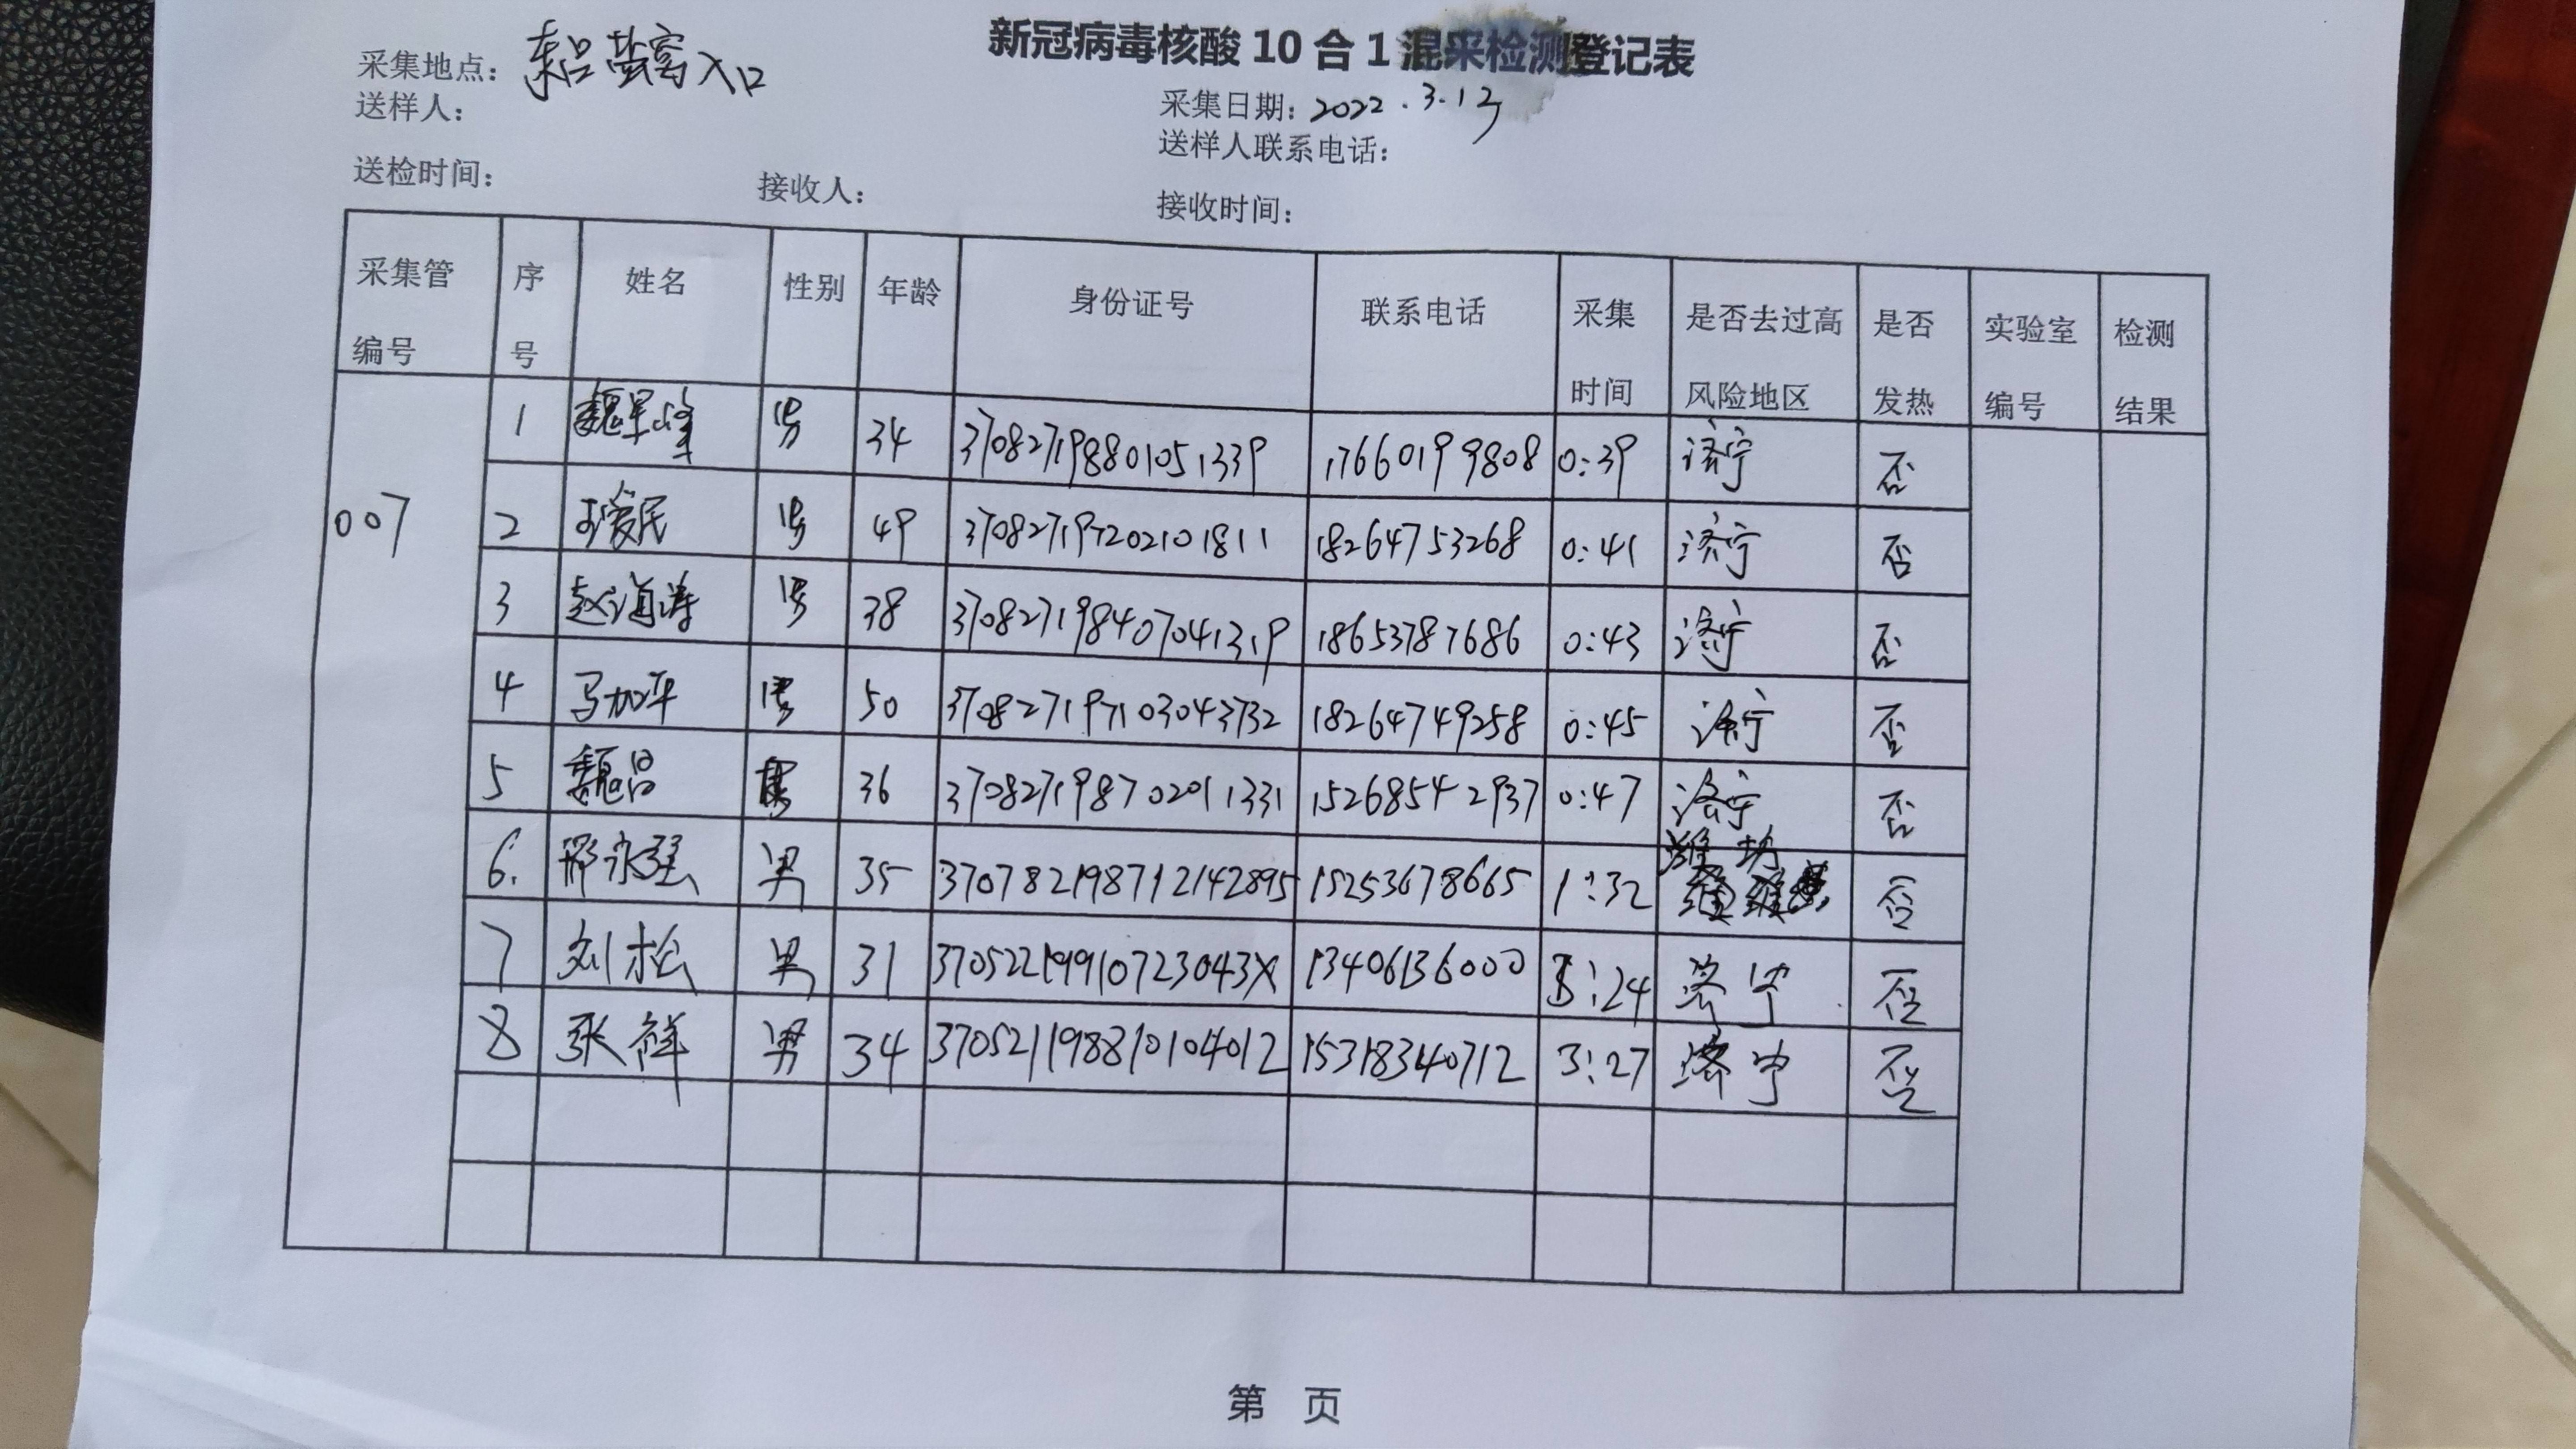 新冠病毒核酸 10 合 1 混采检测登记表
采集地点： 东吕 入口
采集日期： 2022.3.13
送样人：
送样人联系电话：
送检时间： 接收人： 接收时间：
采集管编号 序号 姓名 性别 年龄 身份证号 联系电话 采集时间 是否去过高风险地区 是否发热 实验室编号 检测结果
007
1 魏 峰 男 34 370827198801051339 17660199808 0:39 济宁 否
2 爱民 男 49 370827197202101811 18264753268 0:41 济宁 否
3 赵海涛 男 38 370827198407041319 18653787686 0:43 济宁 否
4 马加平 男 50 370827197103043732 18264749258 0:45 济宁 否
5 魏吕 男 36 370827198702011331 15268542937 0:47 济宁 否
6. 邢永强 男 35 370782198712142895 15253678665 1:32 潍坊 否
7 刘松 男 31 37052219910723043X 13406136000 3:24 济宁 否
8 张祥 男 34 370521198810104012 15318340712 3:27 济宁 否
第 页